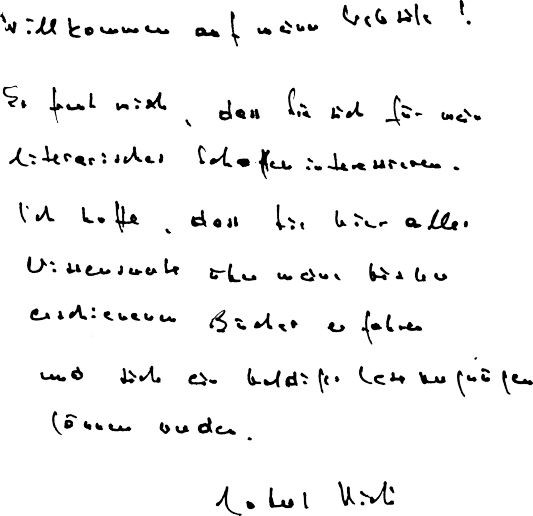 Willkommen auf meiner Website!
Es freut mich, dass Sie sich für mein
literarisches Schaffen interessieren.
Ich hoffe, dass Sie hier alles
Wissenswerte über meine bisher
erschienenen Bücher erfahren
und sich ein baldiges Lesevergnügen
können werden.